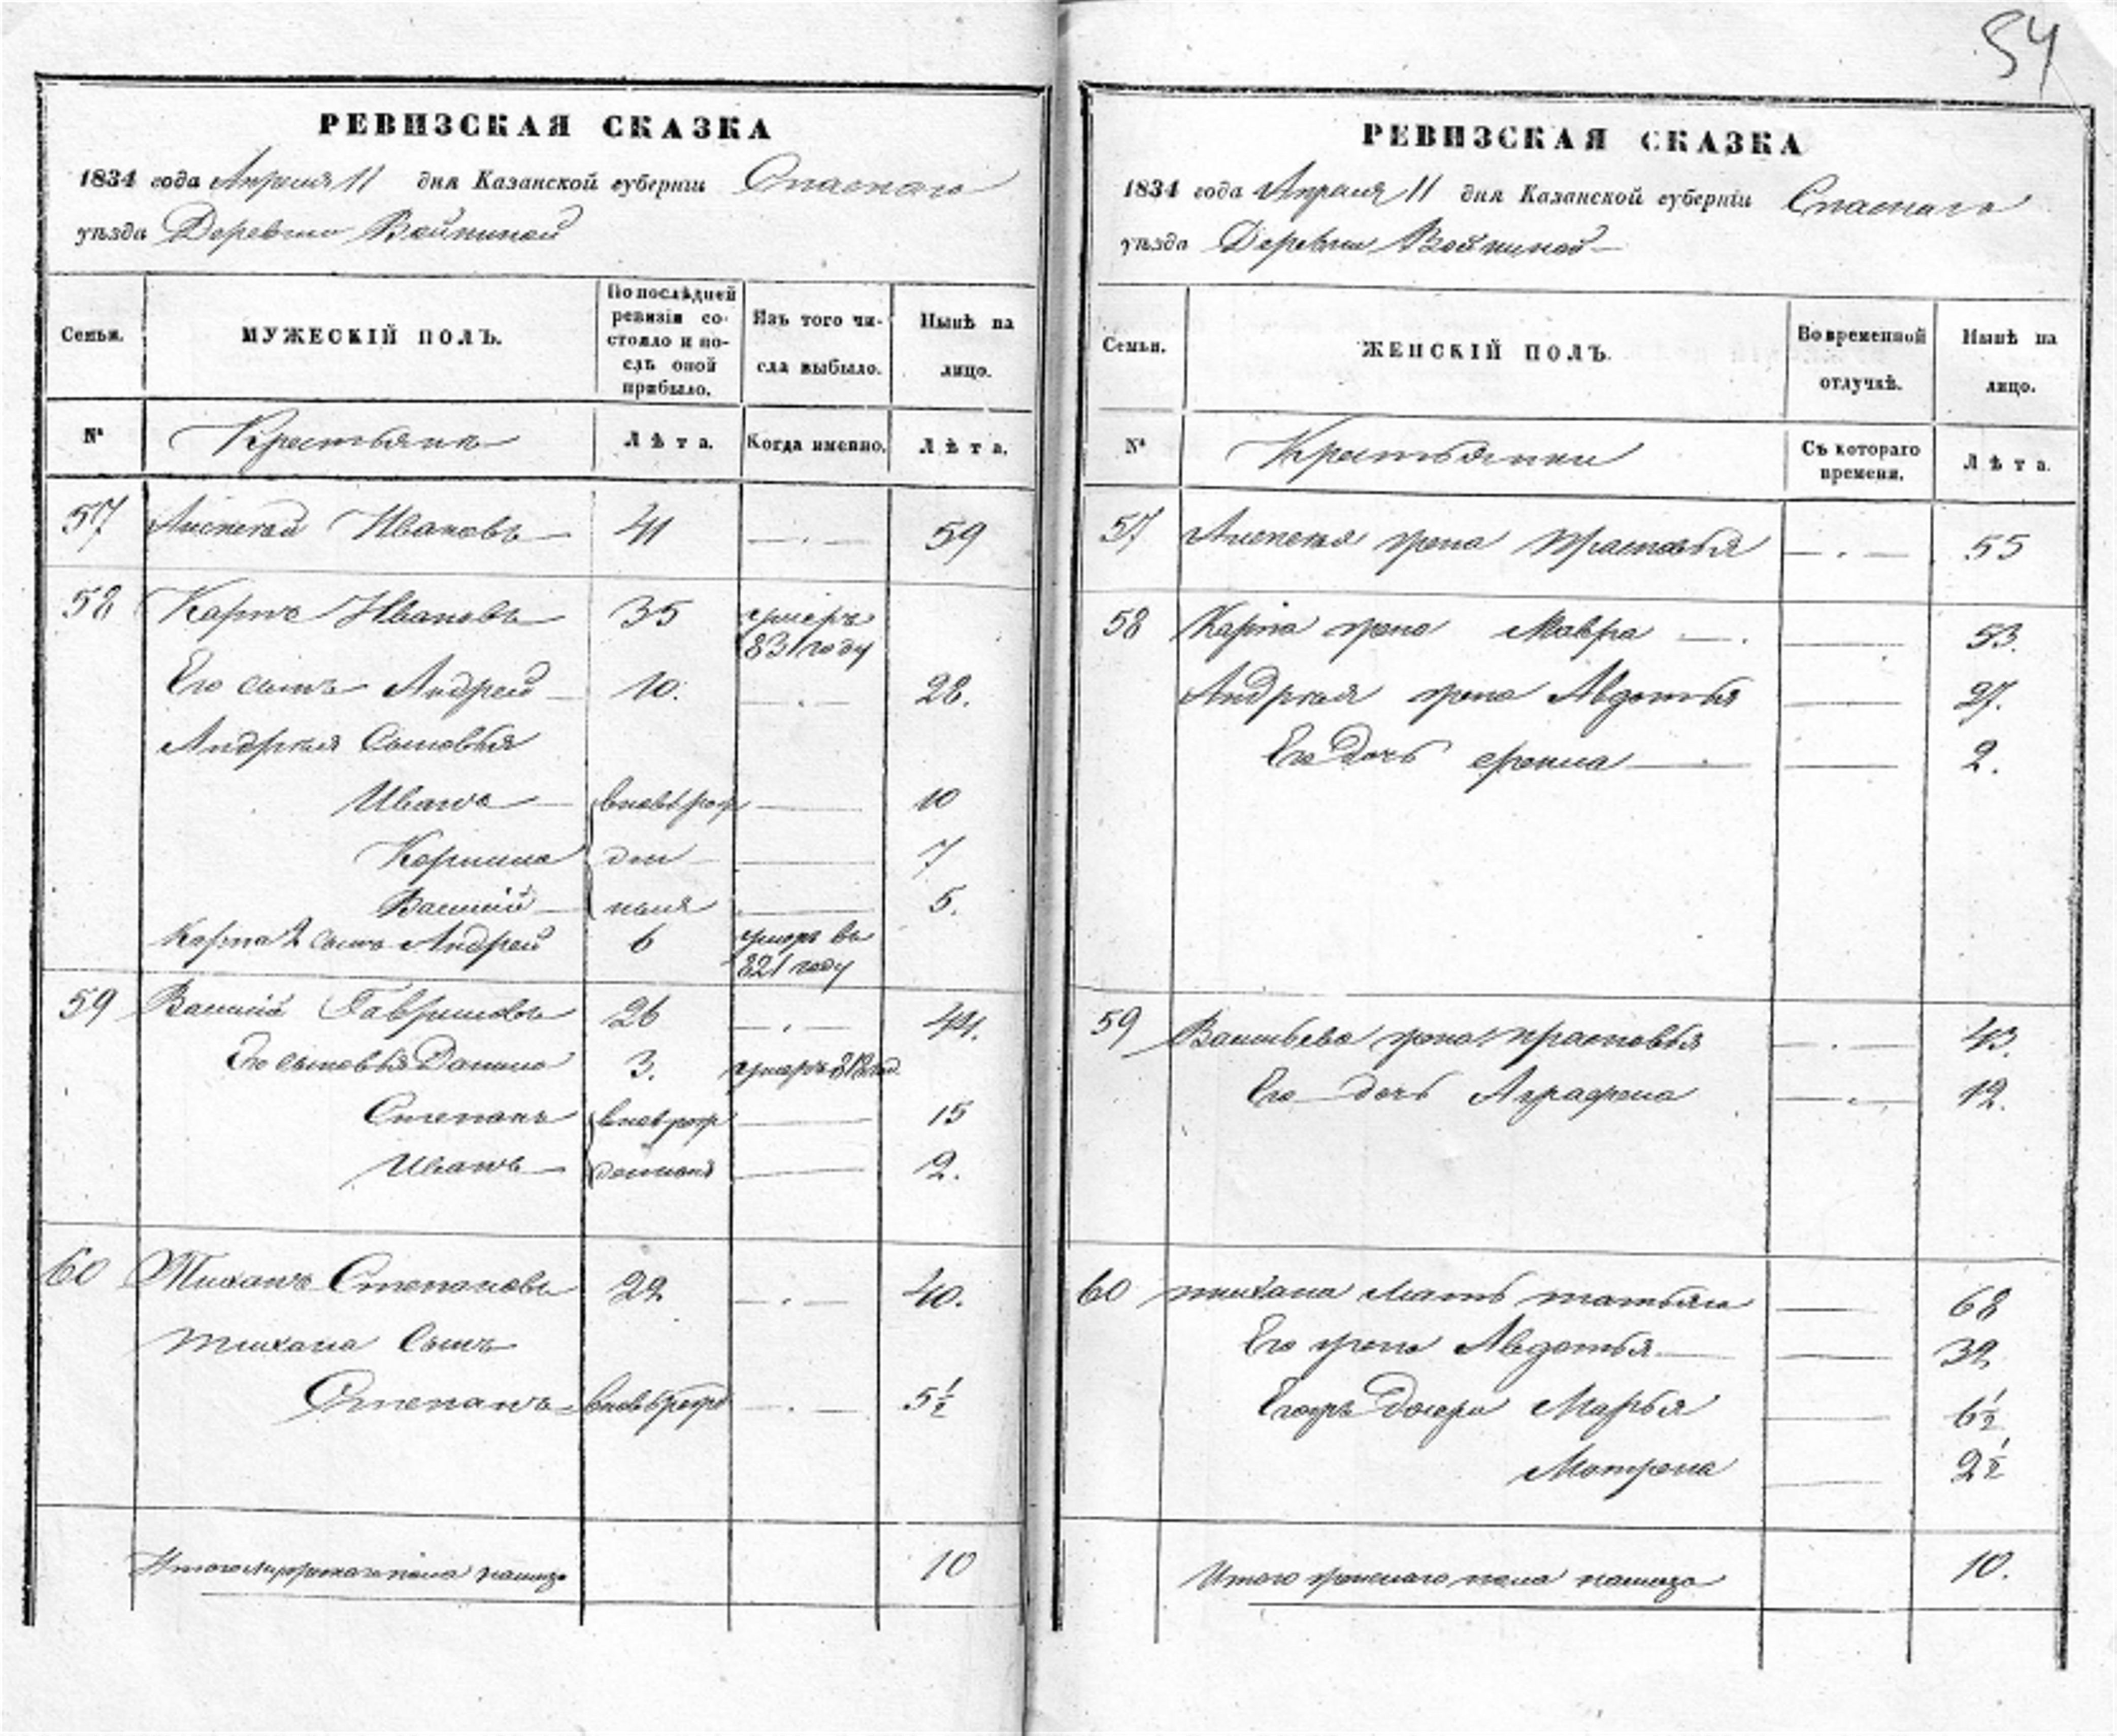 54
РЕВИЗСКАЯ СКАЗКА
1834 года Апреля 11 дня Казанской губерніи Спаскаго
уѣзда Деревни Войкиной
Семьи.
МУЖЕСКІЙ ПОЛЪ.
По послѣдней
ревизіи со-
стояло и по-
слѣ оной
прибыло.
Изъ того чи-
сла выбыло.
Нынѣ на
лицо.
№
Крестьяне
Лѣта.
Когда именно.
Лѣта.
57 Алексей Ивановъ 41 59
58 Карпъ Ивановъ 35 умеръ
831 году
Его сынъ Андрей 10. 28.
Андрея Сыновья
Иванъ вновь рож 10
Корнила ден 7
Василій ныя 5.
Карпа 2 сынъ Андрей 6 умеръ въ
821 году
59 Василій Гавриловъ 26 44.
Его сыновья Данило 3. умеръ 818 год.
Степанъ вновь рож 15
Иванъ 2.
60 Тиханъ Степановъ 22 40.
Тихана Сынъ
Степанъ вновь рож 5 1/2
Итого мужеска пола налицо 10
РЕВИЗСКАЯ СКАЗКА
1834 года Апреля 11 дня Казанской губерніи Спаскаго
уѣзда Деревни Войкиной
Семьи.
ЖЕНСКІЙ ПОЛЪ.
Во временной
отлучкѣ.
Нынѣ на
лицо.
№
Крестьянки
Съ котораго
времени.
Лѣта.
57 Алексея жена Прасковья 55
58 Карпа жена Мавра 53.
Андрея жена Авдотья 27.
Его дочь 2.
59 Васильева жена Прасковья 43.
Его дочь Аграфена 12.
60 Тихана мать Татьяна 68
Его жена Авдотья 32
дочери Марья 6 1/2
Матрена 2 1/2
Итого женскаго пола налицо 10.